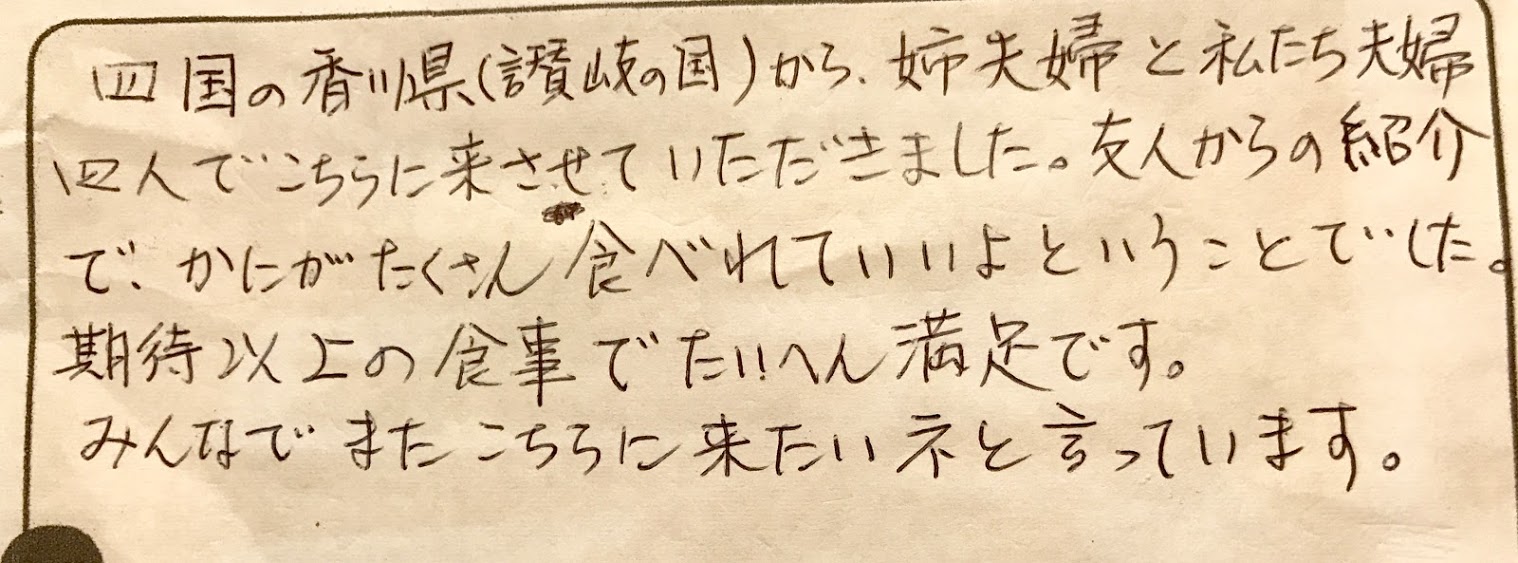 四国の香川県(讃岐の国)から、姉夫婦と私たち夫婦
四人でこちらに来させていただきました。友人からの紹介
で、かにがたくさん食べれていいよということでした。
期待以上の食事でたいへん満足です。
みんなでまたこちらに来たいネと言っています。